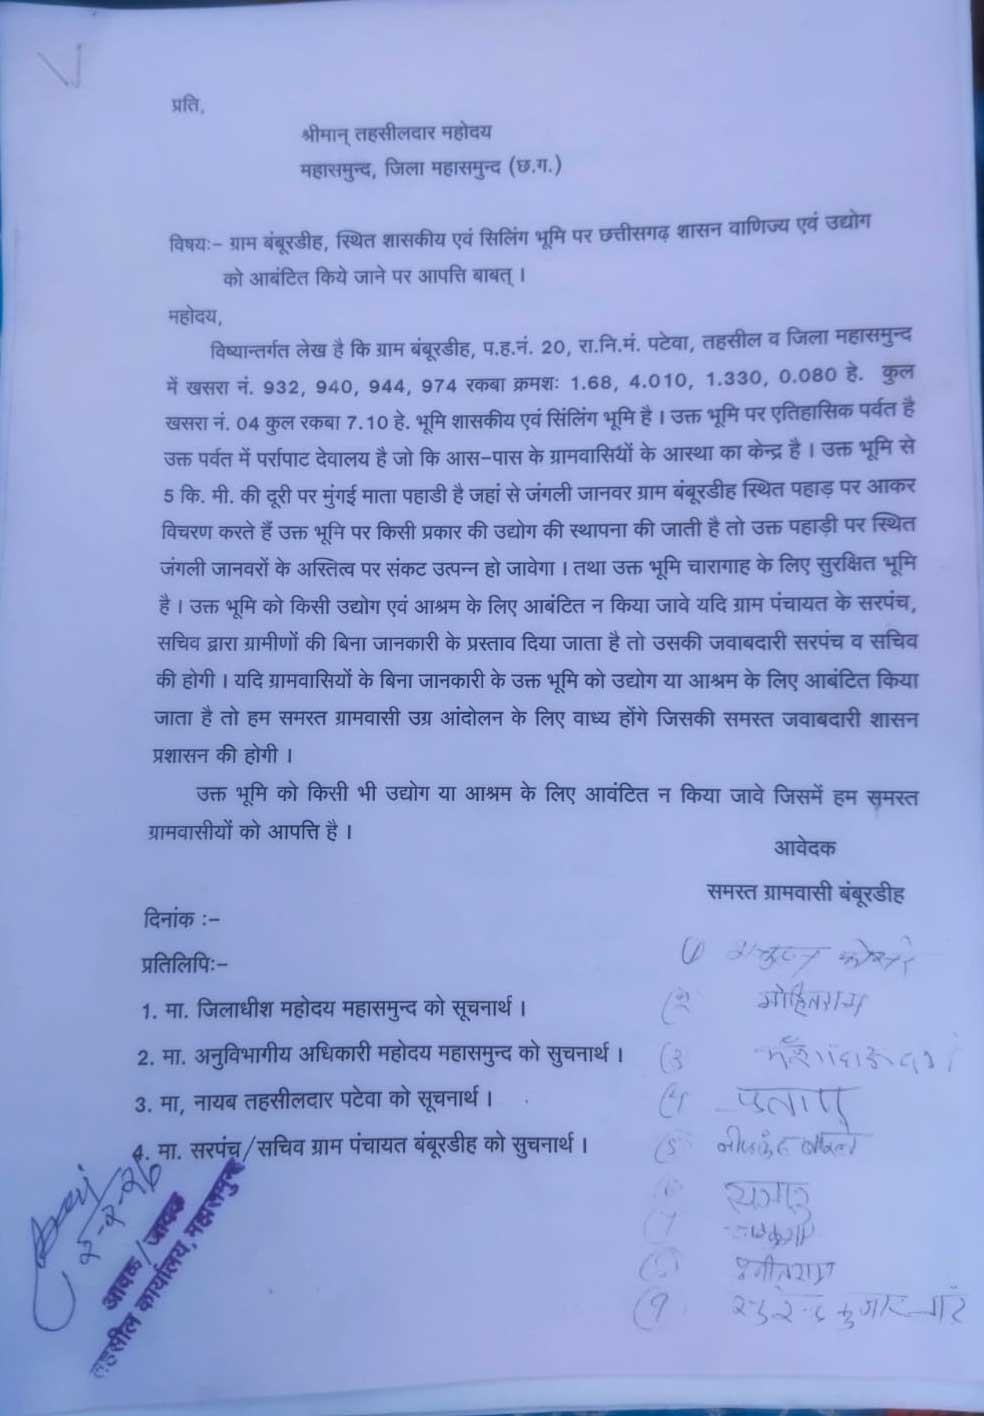 प्रति,
श्रीमान् तहसीलदार महोदय
महासमुन्द, जिला महासमुन्द (छ.ग.)
विषयः- ग्राम बंबूरडीह, स्थित शासकीय एवं सिलिंग भूमि पर छत्तीसगढ़ शासन वाणिज्य एवं उद्योग
को आबंटित किये जाने पर आपत्ति बाबत् ।
महोदय,
विष्यान्तर्गत लेख है कि ग्राम बंबूरडीह, प.ह.नं. 20, रा.नि.मं. पटेवा, तहसील व जिला महासमुन्द
में खसरा नं. 932, 940, 944, 974 रकबा क्रमशः 1.68, 4.010, 1.330, 0.080 हे. कुल
खसरा नं. 04 कुल रकबा 7.10 हे. भूमि शासकीय एवं सिंलिंग भूमि है । उक्त भूमि पर एतिहासिक पर्वत है
उक्त पर्वत में पर्रापाट देवालय है जो कि आस-पास के ग्रामवासियों के आस्था का केन्द्र है । उक्त भूमि से
5 कि. मी. की दूरी पर मुंगई माता पहाडी है जहां से जंगली जानवर ग्राम बंबूरडीह स्थित पहाड़ पर आकर
विचरण करते हैं उक्त भूमि पर किसी प्रकार की उद्योग की स्थापना की जाती है तो उक्त पहाड़ी पर स्थित
जंगली जानवरों के अस्तित्व पर संकट उत्पन्न हो जावेगा । तथा उक्त भूमि चारागाह के लिए सुरक्षित भूमि
है । उक्त भूमि को किसी उद्योग एवं आश्रम के लिए आबंटित न किया जावे यदि ग्राम पंचायत के सरपंच,
सचिव द्वारा ग्रामीणों की बिना जानकारी के प्रस्ताव दिया जाता है तो उसकी जवाबदारी सरपंच व सचिव
की होगी । यदि ग्रामवासियों के बिना जानकारी के उक्त भूमि को उद्योग या आश्रम के लिए आबंटित किया
जाता है तो हम समस्त ग्रामवासी उग्र आंदोलन के लिए वाध्य होंगे जिसकी समस्त जवाबदारी शासन
प्रशासन की होगी ।
उक्त भूमि को किसी भी उद्योग या आश्रम के लिए आवंटित न किया जावे जिसमें हम समस्त
ग्रामवासीयों को आपत्ति है ।
आवेदक
समस्त ग्रामवासी बंबूरडीह
दिनांक :-
प्रतिलिपिः-
1. मा. जिलाधीश महोदय महासमुन्द को सूचनार्थ ।
2. मा. अनुविभागीय अधिकारी महोदय महासमुन्द को सुचनार्थ ।
3. मा, नायब तहसीलदार पटेवा को सूचनार्थ ।
4. मा. सरपंच/सचिव ग्राम पंचायत बंबूरडीह को सुचनार्थ ।
(1
(२ मोहितराम
(3
(4 प्रताप
(5
(9
आवक/जावक
तहसील कार्यालय, महासमुन्द